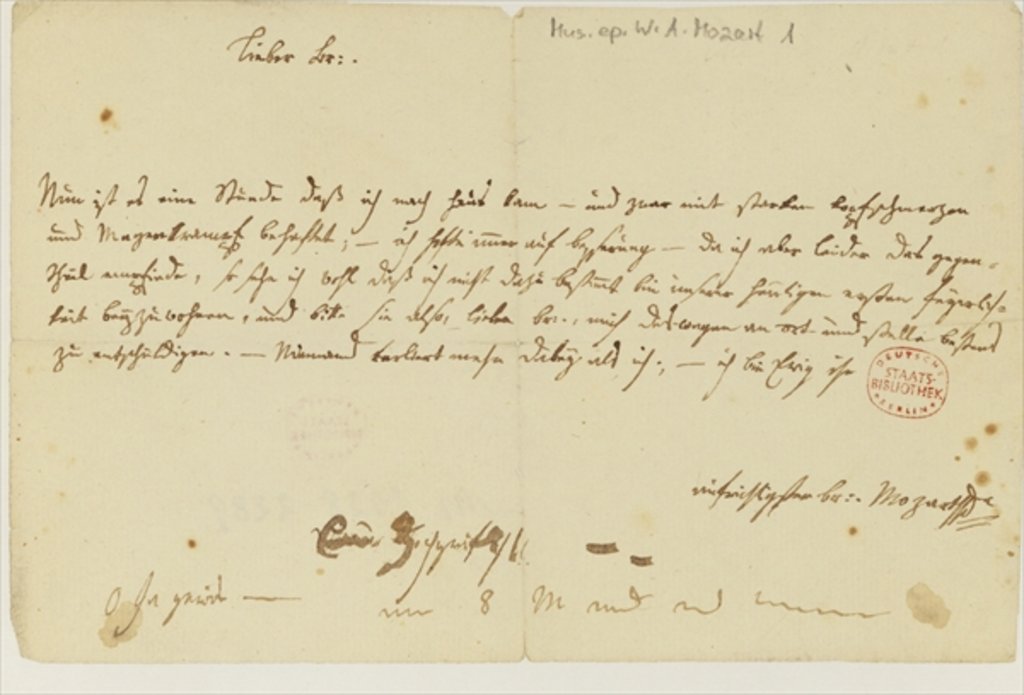 Mus. ep. W. A. Mozart 1
Lieber br:.
Nun ist es eine Stunde daß ich nach haus kam – und zwar mit starken kopfschmerzen
und Magenkrampf behaftet; – ich hofte immer auf besserung – da ich aber leider das gegen-
theil empfinde, so sehe ich wohl daß ich nicht dazu bestimmt bin unserer heutigen ersten feyerlich-
keit beyzuwohnen, und bitte sie also, lieber br:., mich deswegen an ort und stelle bestens
zu entschuldigen. – Niemand verliert mehr dabey als ich; – ich bin Ewig ihr
DEUTSCHE
STAATS-
BIBLIOTHEK
BERLIN
aufrichtigster br:. Mozart
8